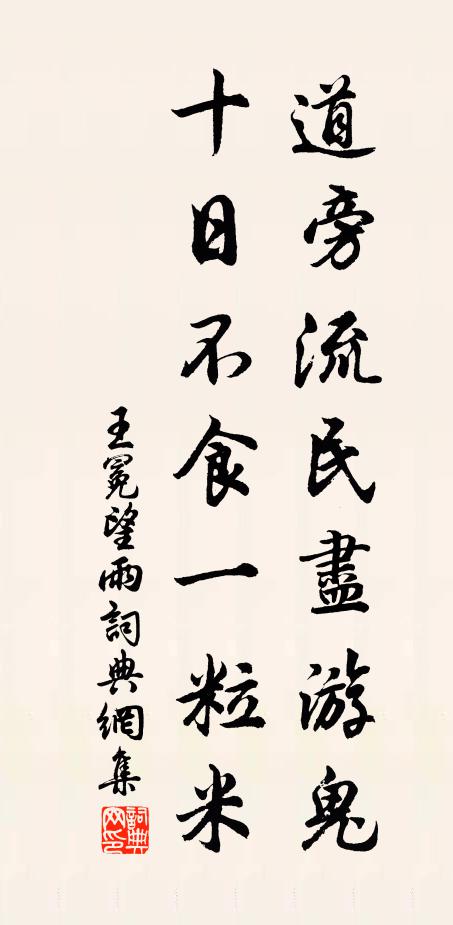 道旁流民盡游鬼
十日不食一粒米
王冕望雨詞典網集
詞典网印